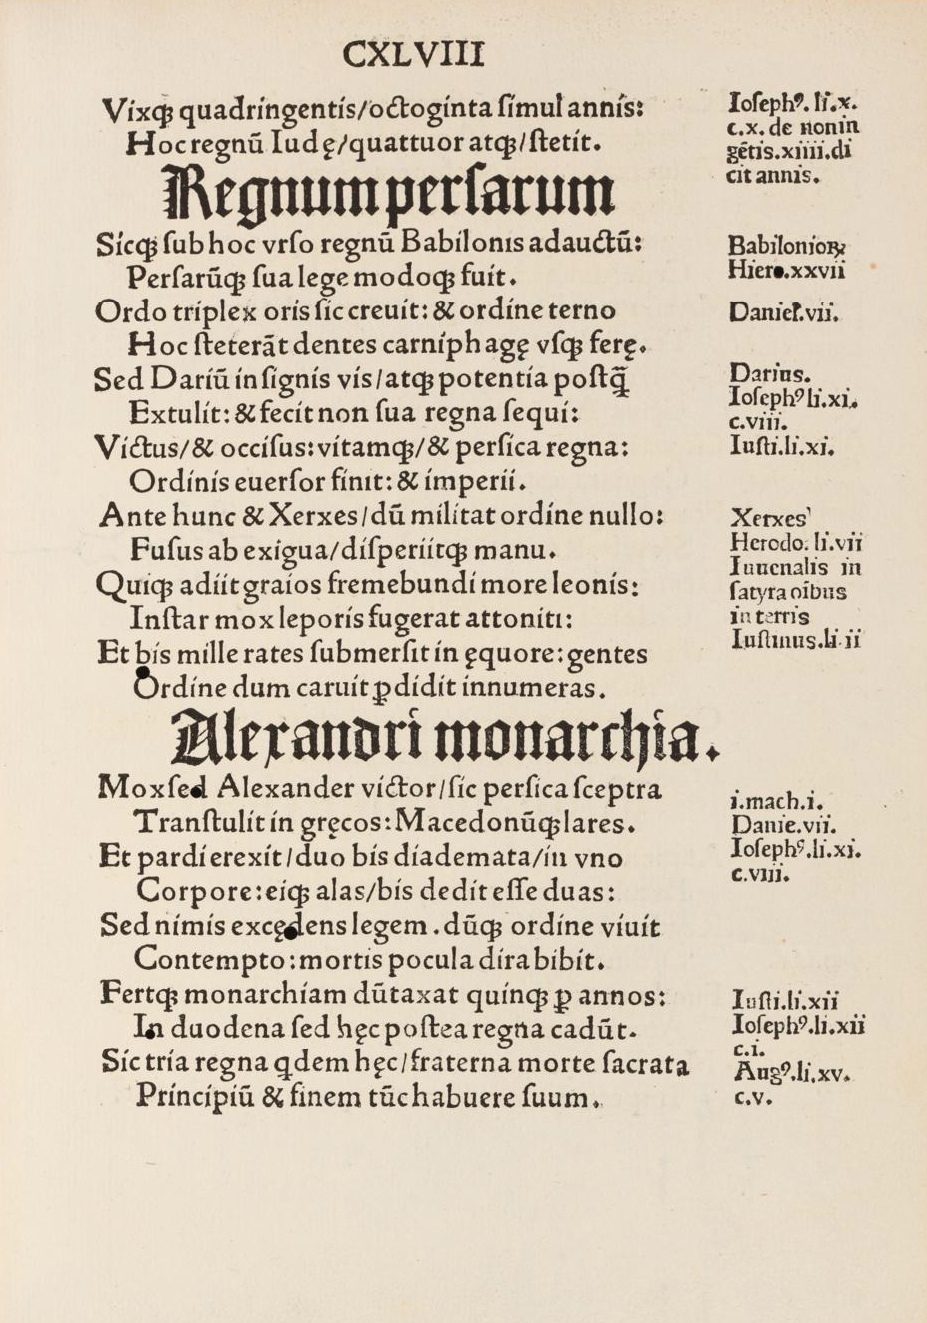 CXLVIII
Vixqꝫ quadringentis/octoginta ſimul annis:
Hoc regnū Iudę/quattuor atqꝫ/ſtetit.
Ioſephꝰ. li.x.
c.x. de nonin
gētis.xiiii.di
cit annis.
Regnum perſarum
Sicqꝫ ſub hoc vrſo regnū Babilonis adauctū:
Perſarūqꝫ ſua lege modoqꝫ fuit.
Babilonioꝝ
Hiere.xxvii
Ordo triplex oris ſic creuit: & ordine terno
Hoc ſteterāt dentes carniphagę vſqꝫ ferę.
Daniel.vii.
Sed Dariū inſignis vis/atqꝫ potentia poſtq̄
Extulit: & fecit non ſua regna ſequi:
Victus/& occiſus: vitamqꝫ/& perſica regna:
Ordinis euerſor finit: & imperii.
Darius.
Ioſephꝰ li.xi.
c.viii.
Iuſti.li.xi.
Ante hunc & Xerxes/dū militat ordine nullo:
Fuſus ab exigua/diſperiitqꝫ manu.
Quiqꝫ adiit graios fremebundi more leonis:
Inſtar mox leporis fugerat attoniti:
Et bis mille rates ſubmerſit in ęquore: gentes
Ordine dum caruit ꝑdidit innumeras.
Xerxes
Herodo. li.vii
Iuuenalis in
ſatyra oībus
in terris
Iuſtinus.li.ii
Alexandri monarchia.
Mox ſed Alexander victor/ſic perſica ſceptra
Tranſtulit in gręcos: Macedonūqꝫ lares.
Et pardi erexit/duo bis diademata/in vno
Corpore: eiqꝫ alas/bis dedit eſſe duas:
i.mach.i.
Danie.vii.
Ioſephꝰ.li.xi.
c.viii.
Sed nimis excędens legem. dūqꝫ ordine viuit
Contempto: mortis pocula dira bibit.
Fertqꝫ monarchiam dūtaxat quinqꝫ ꝑ annos:
In duodena ſed hęc poſtea regna cadūt.
Sic tria regna qdem hęc/fraterna morte ſacrata
Principiū & finem tūc habuere ſuum.
Iuſti.li.xii
Ioſephꝰ.li.xii
c.i.
Augꝰ.li.xv.
c.v.